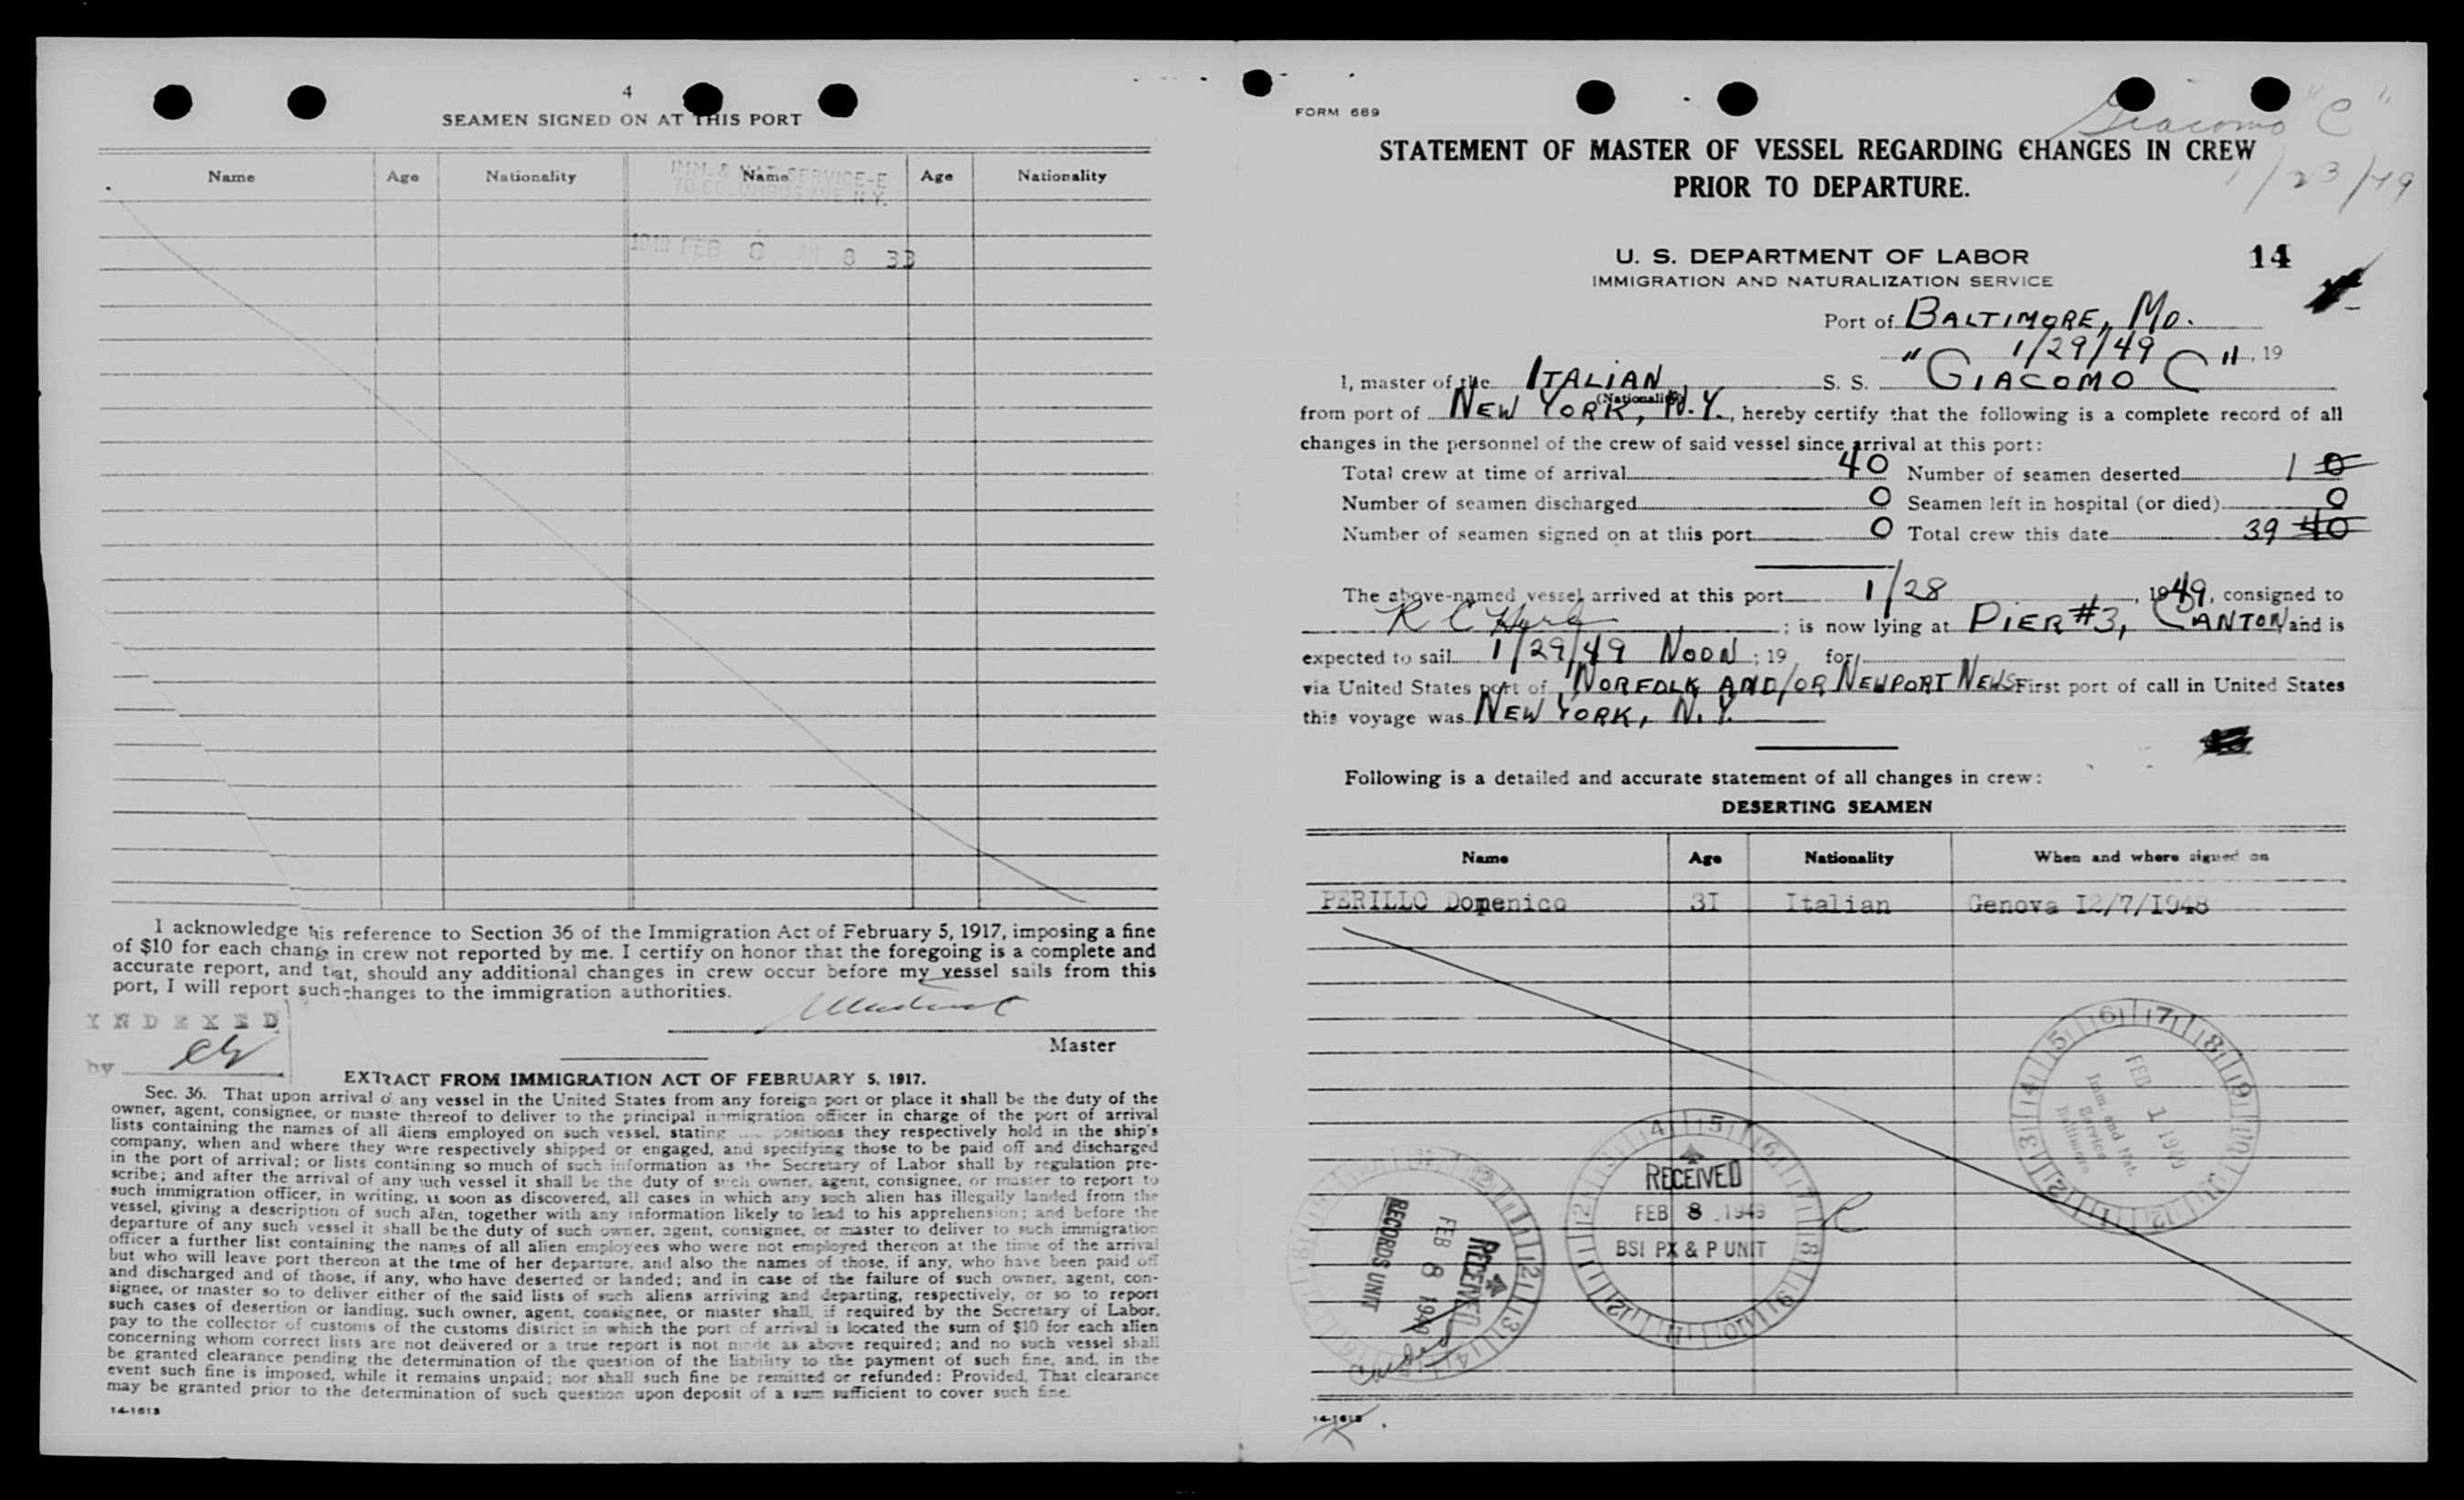 4
SEAMEN SIGNED ON AT THIS PORT
Name Age Nationality Name Age Nationality
IMM. & NAT SERVICE-E
70 COLUMBUS AVE N.Y.
FEB 8 8 33
I acknowledge his reference to Section 36 of the Immigration Act of February 5, 1917, imposing a fine
of $10 for each chang in crew not reported by me. I certify on honor that the foregoing is a complete and
accurate report, and tat, should any additional changes in crew occur before my vessel sails from this
port, I will report such changes to the immigration authorities.
Master
INDEXED
by
EXTRACT FROM IMMIGRATION ACT OF FEBRUARY 5, 1917.
Sec. 36. That upon arrival o any vessel in the United States from any foreign port or place it shall be the duty of the
owner, agent, consignee, or maste thereof to deliver to the principal immigration officer in charge of the port of arrival
lists containing the names of all aliens employed on such vessel, stating the positions they respectively hold in the ship's
company, when and where they were respectively shipped or engaged, and specifying those to be paid off and discharged
in the port of arrival; or lists containing so much of such information as the Secretary of Labor shall by regulation pre-
scribe; and after the arrival of any such vessel it shall be the duty of such owner, agent, consignee, or master to report to
such immigration officer, in writing, as soon as discovered, all cases in which any such alien has illegally landed from the
vessel, giving a description of such alien, together with any information likely to lead to his apprehension; and before the
departure of any such vessel it shall be the duty of such owner, agent, consignee, or master to deliver to such immigration
officer a further list containing the names of all alien employees who were not employed thereon at the time of the arrival
but who will leave port thereon at the time of her departure, and also the names of those, if any, who have been paid off
and discharged and of those, if any, who have deserted or landed; and in case of the failure of such owner, agent, con-
signee, or master so to deliver either of the said lists of such aliens arriving and departing, respectively, or so to report
such cases of desertion or landing, such owner, agent, consignee, or master shall, if required by the Secretary of Labor,
pay to the collector of customs of the customs district in which the port of arrival is located the sum of $10 for each alien
concerning whom correct lists are not delivered or a true report is not made as above required; and no such vessel shall
be granted clearance pending the determination of the question of the liability to the payment of such fine, and, in the
event such fine is imposed, while it remains unpaid; nor shall such fine be remitted or refunded: Provided, That clearance
may be granted prior to the determination of such question upon deposit of a sum sufficient to cover such fine.
14-1613
FORM 689
Giacomo "C"
1/23/49
STATEMENT OF MASTER OF VESSEL REGARDING CHANGES IN CREW
PRIOR TO DEPARTURE.
U. S. DEPARTMENT OF LABOR
IMMIGRATION AND NATURALIZATION SERVICE
14
Port of BALTIMORE, MD.
1/29/49, 19
I, master of the ITALIAN S. S. "GIACOMO C"
(Nationality)
from port of NEW YORK, N.Y., hereby certify that the following is a complete record of all
changes in the personnel of the crew of said vessel since arrival at this port:
Total crew at time of arrival 40 Number of seamen deserted 1 0
Number of seamen discharged 0 Seamen left in hospital (or died) 0
Number of seamen signed on at this port 0 Total crew this date 39 40
The above-named vessel arrived at this port 1/28, 1949, consigned to
R C Herd; is now lying at PIER #3, CANTON and is
expected to sail 1/29/49 NOON; 19 for
via United States port of NORFOLK AND/OR NEWPORT NEWS First port of call in United States
this voyage was NEW YORK, N.Y.
Following is a detailed and accurate statement of all changes in crew:
DESERTING SEAMEN
Name Age Nationality When and where signed on
PERILLO Domenico 3I Italian Genova I2/7/I948
FEB 1 1949
Imm. and Nat.
Service
Baltimore
RECEIVED
FEB 8 1949
BSI PX & P UNIT
RECEIVED
FEB 8 1949
RECORDS UNIT
14-1613